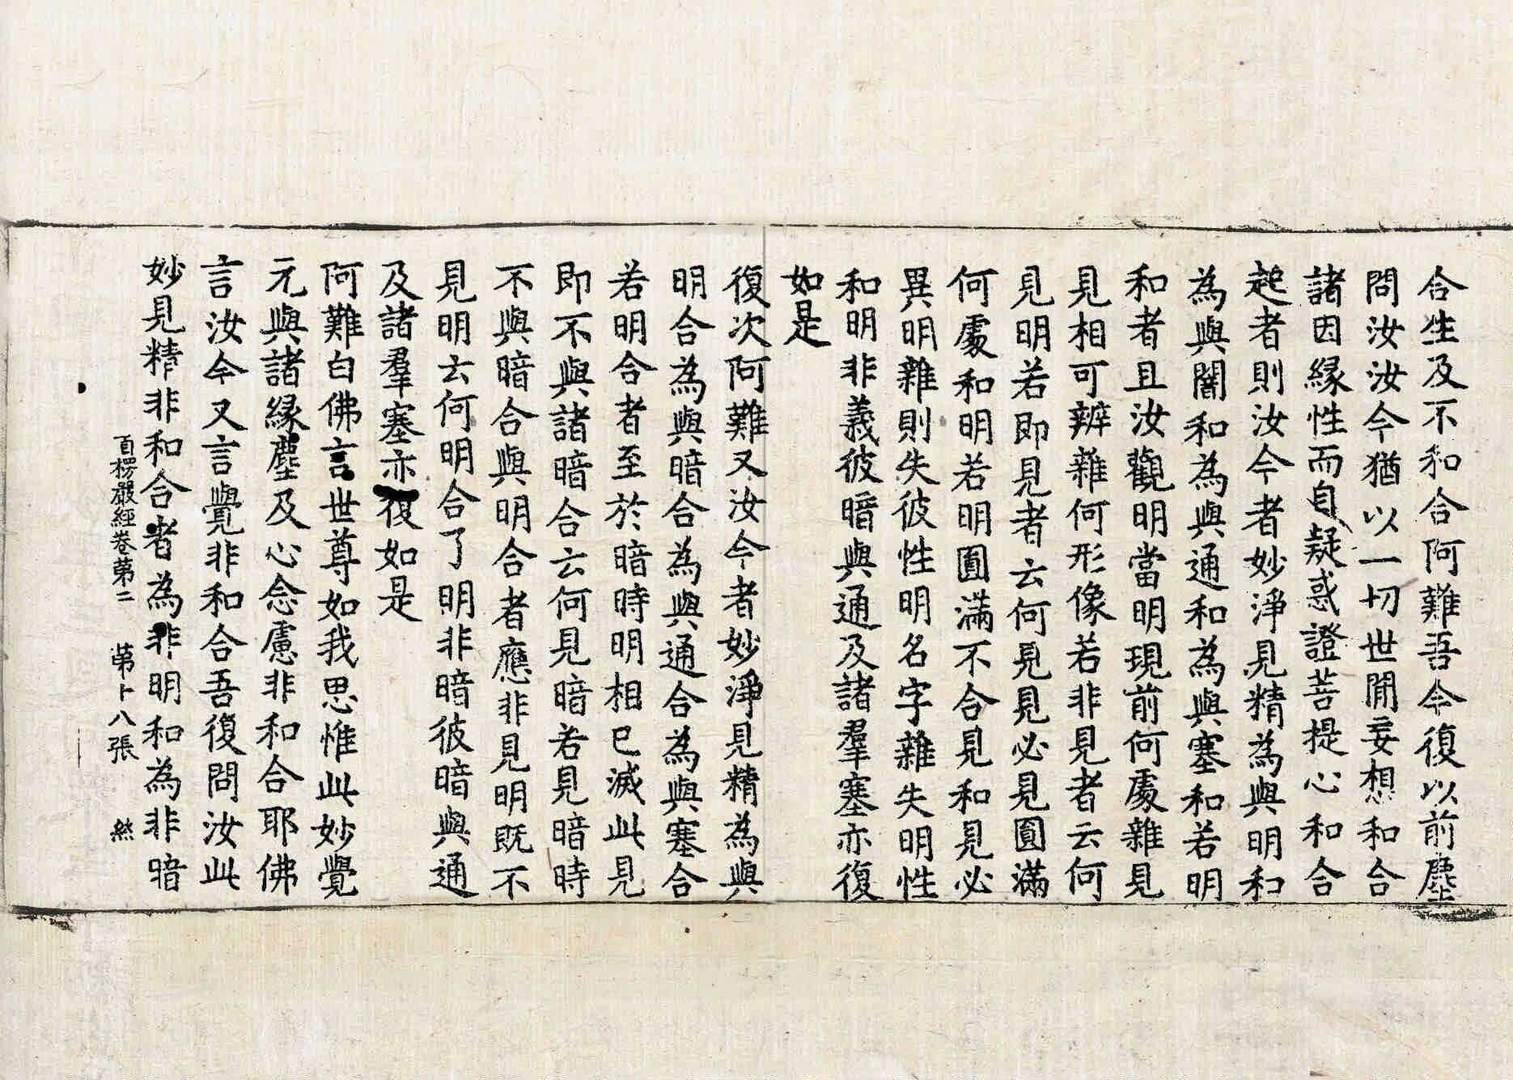 合生及不和合阿難吾今復以前塵
問汝汝今猶以一切世間妄想和合
諸因緣性而自疑惑證菩提心和合
起者則汝今者妙淨見精為與明和
為與闇和為與通和為與塞和若明
和者且汝觀明當明現前何處雜見
見相可辨雜何形像若非見者云何
見明若即見者云何見見必見圓滿
何處和明若明圓滿不合見和見必
異明雜則失彼性明名字雜失明性
和明非義彼暗與通及諸羣塞亦復
如是
復次阿難又汝今者妙淨見精為與
明合為與暗合為與通合為與塞合
若明合者至於暗時明相已滅此見
即不與諸暗合云何見暗若見暗時
不與暗合與明合者應非見明既不
見明云何明合了明非暗彼暗與通
及諸羣塞亦復如是
阿難白佛言世尊如我思惟此妙覺
元與諸緣塵及心念慮非和合耶佛
言汝今又言覺非和合吾復問汝此
妙見精非和合者為非明和為非暗
百楞嚴經卷第二 第卜八張 然